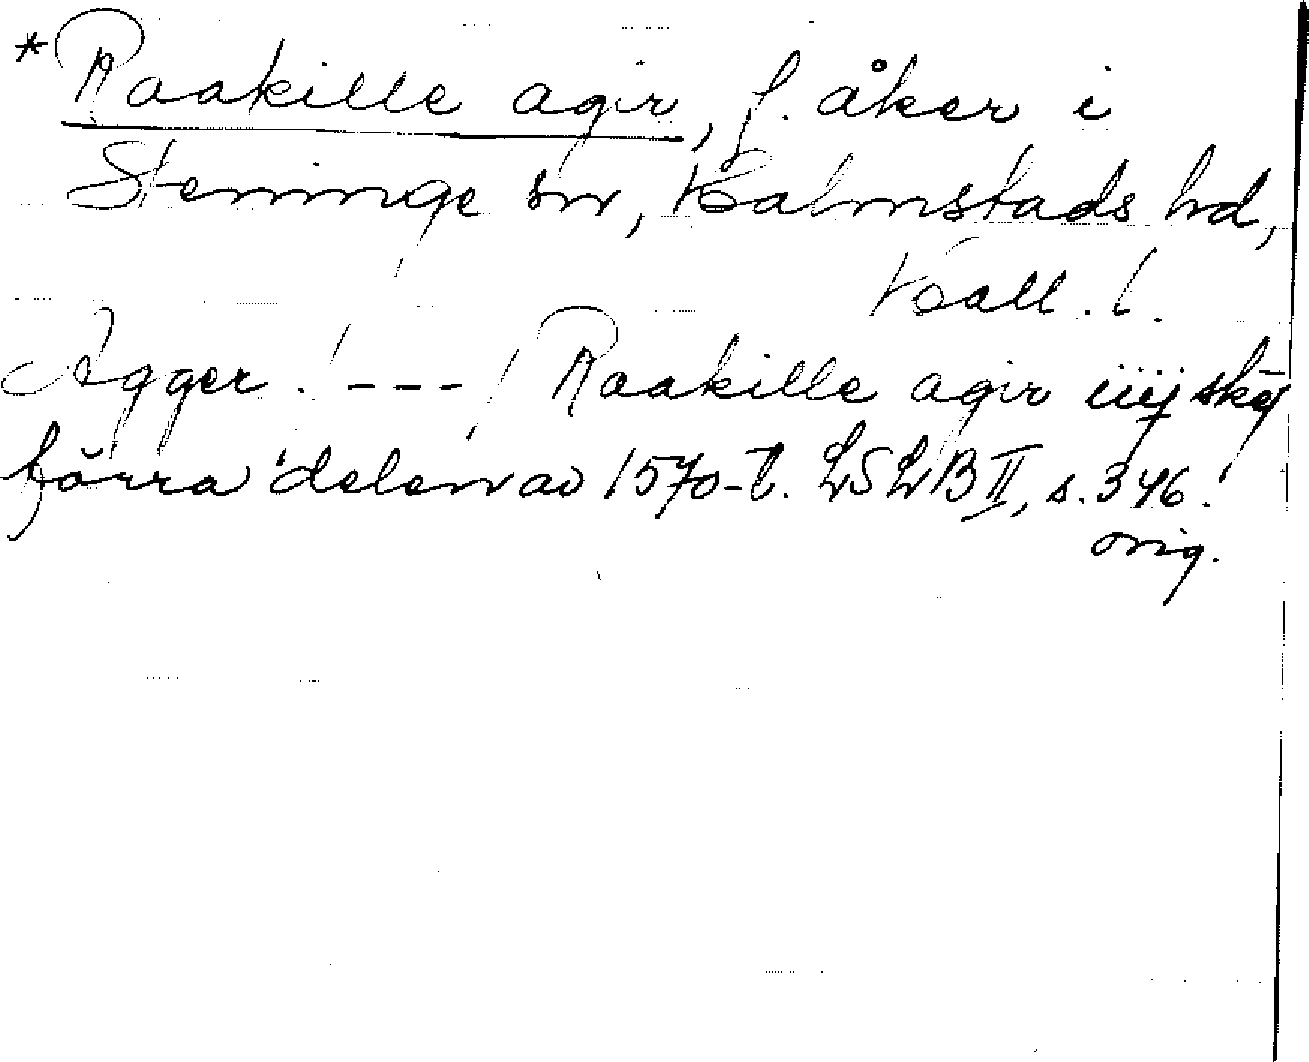 *Raakille agir, f. åker i
Steninge sn, Halmstads hd,
Hall. l.
Agger! --- / Raakille agir iiij skę
förra delen av 1570-t. LSLB II, s. 346!
orig.